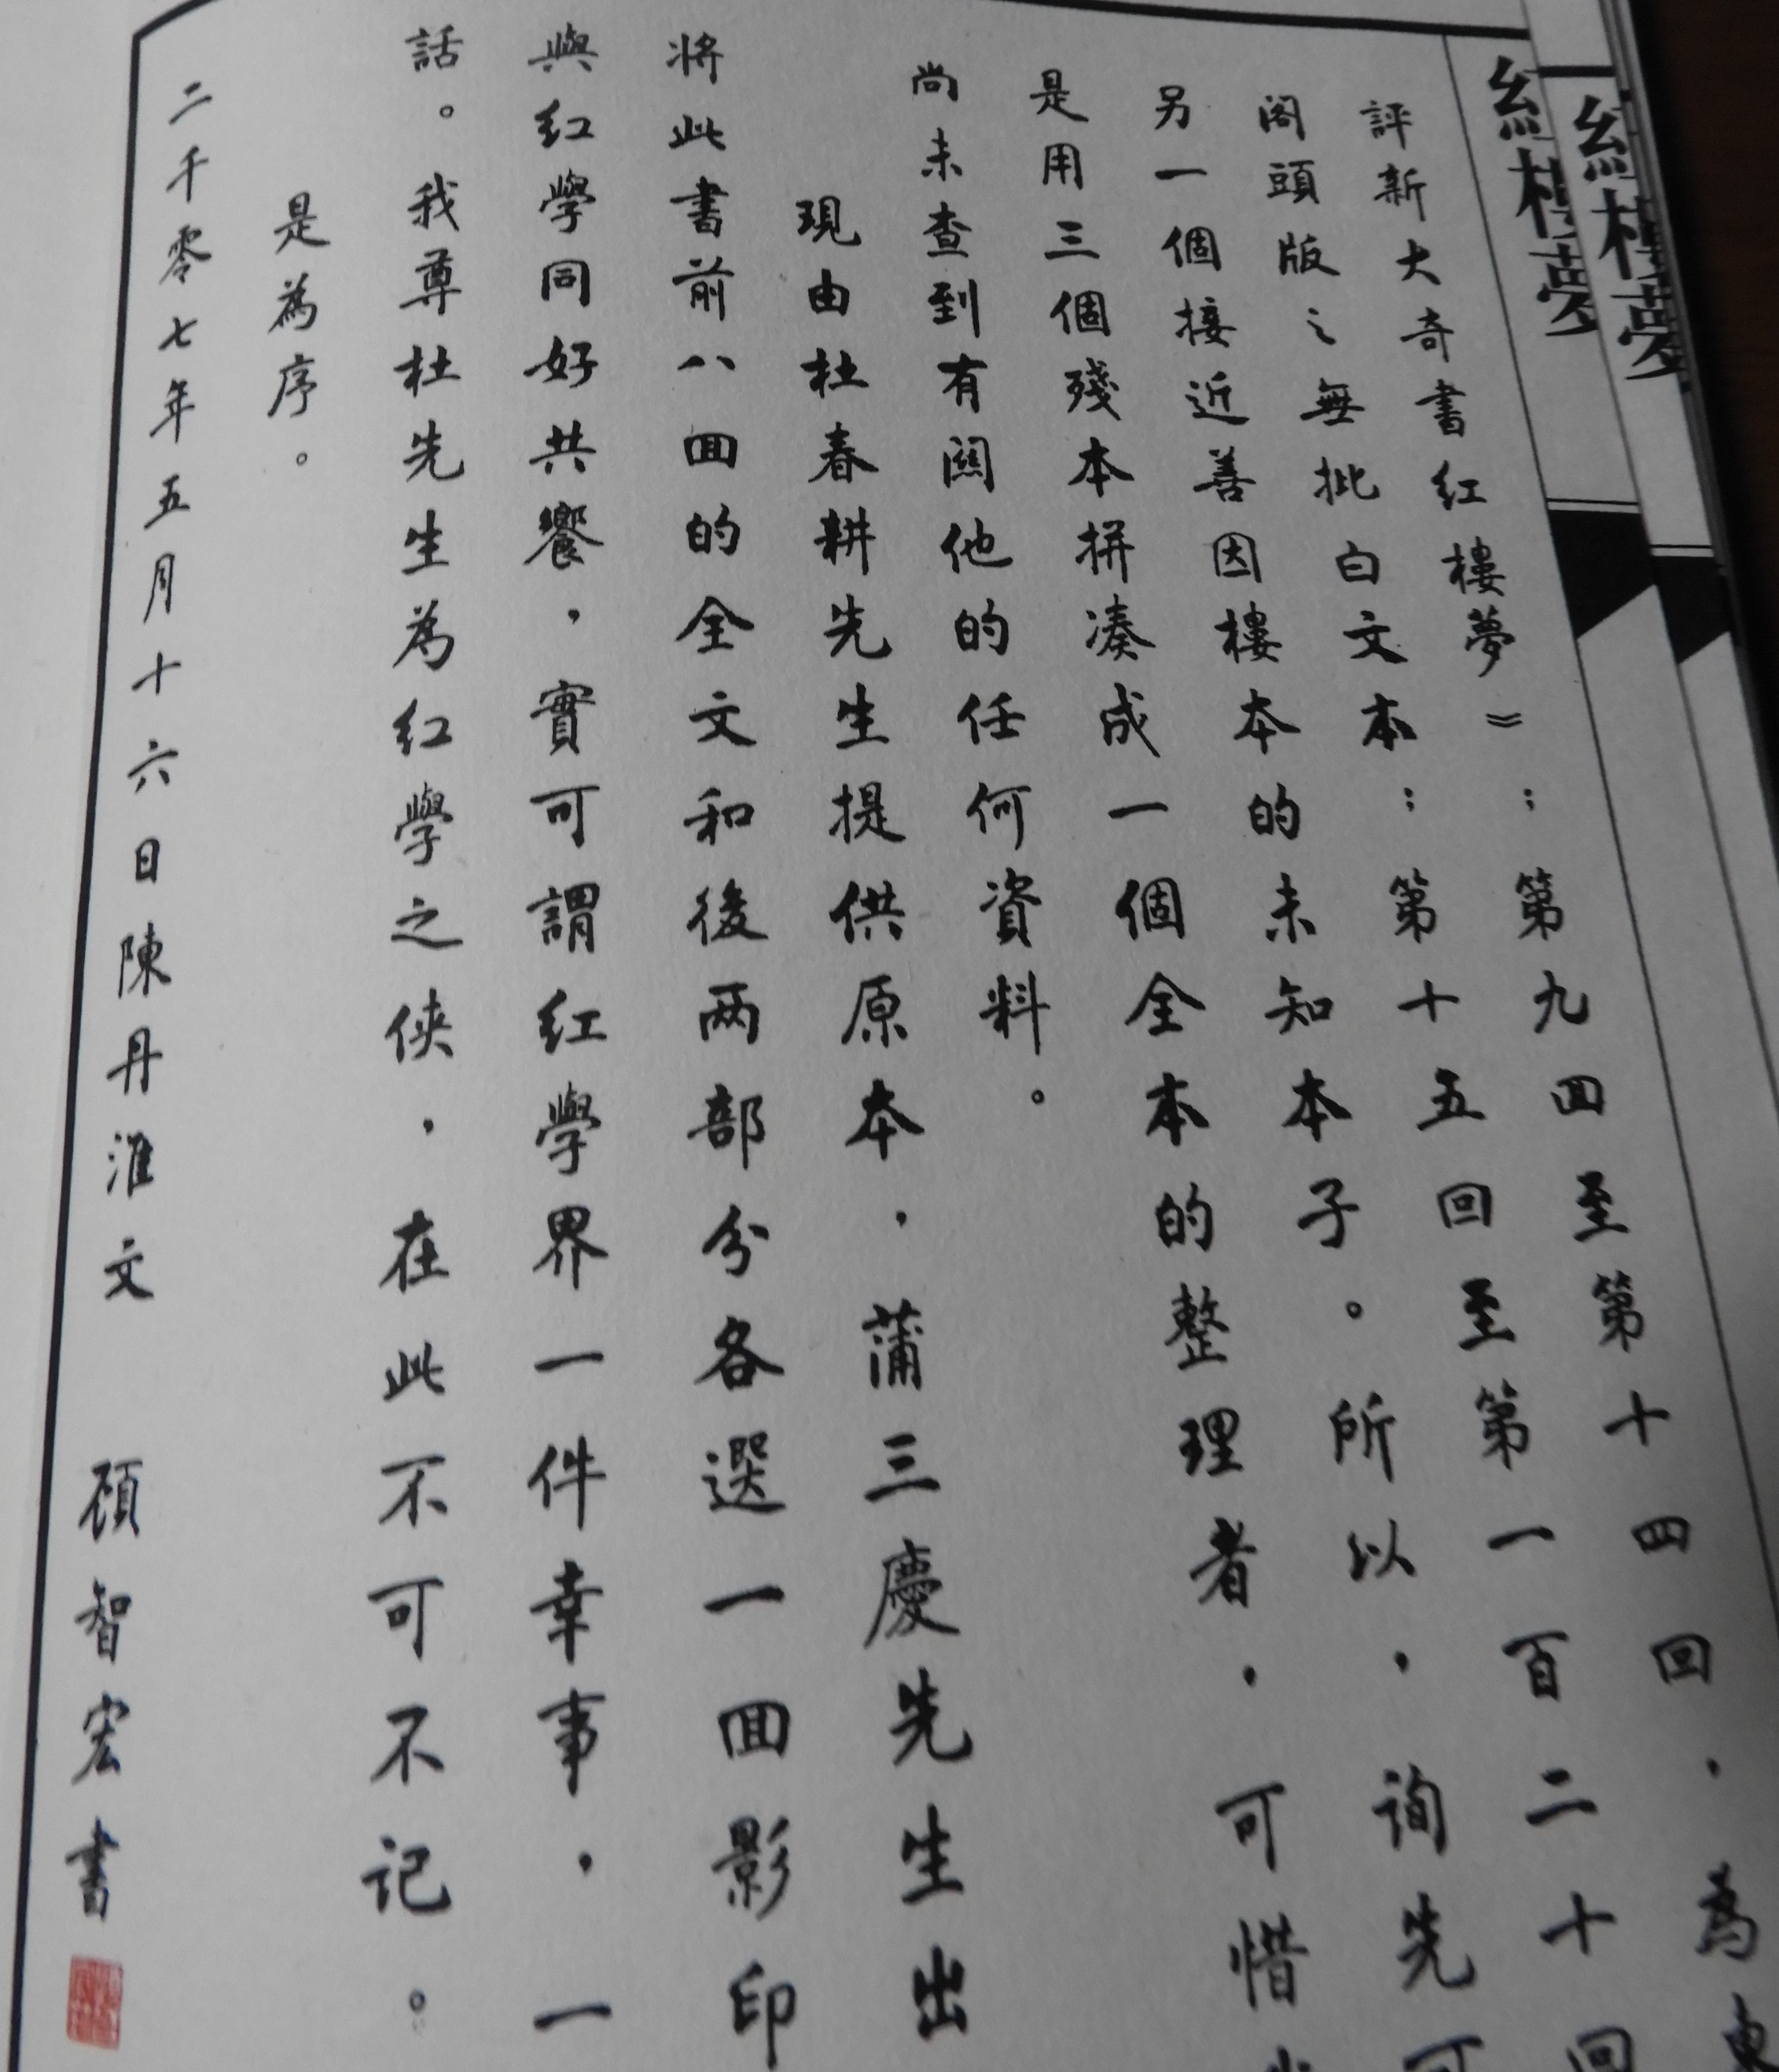 紅樓夢
紅樓夢
評新大奇書红樓夢》：第九回至第十四回，為東
閣頭版之無批白文本：第十五回至第一百二十回
另一個接近善因樓本的未知本子。所以，询先可
是用三個殘本拼凑成一個全本的整理者，可惜
尚未查到有関他的任何資料。
現由杜春耕先生提供原本，蒲三慶先生出
将此書前八回的全文和後两部分各選一回影印
與红學同好共饗，實可謂红學界一件幸事，一
話。我尊杜先生為红學之侠，在此不可不记。
是為序。
二千零七年五月十六日陳丹淮文 顧智宏書